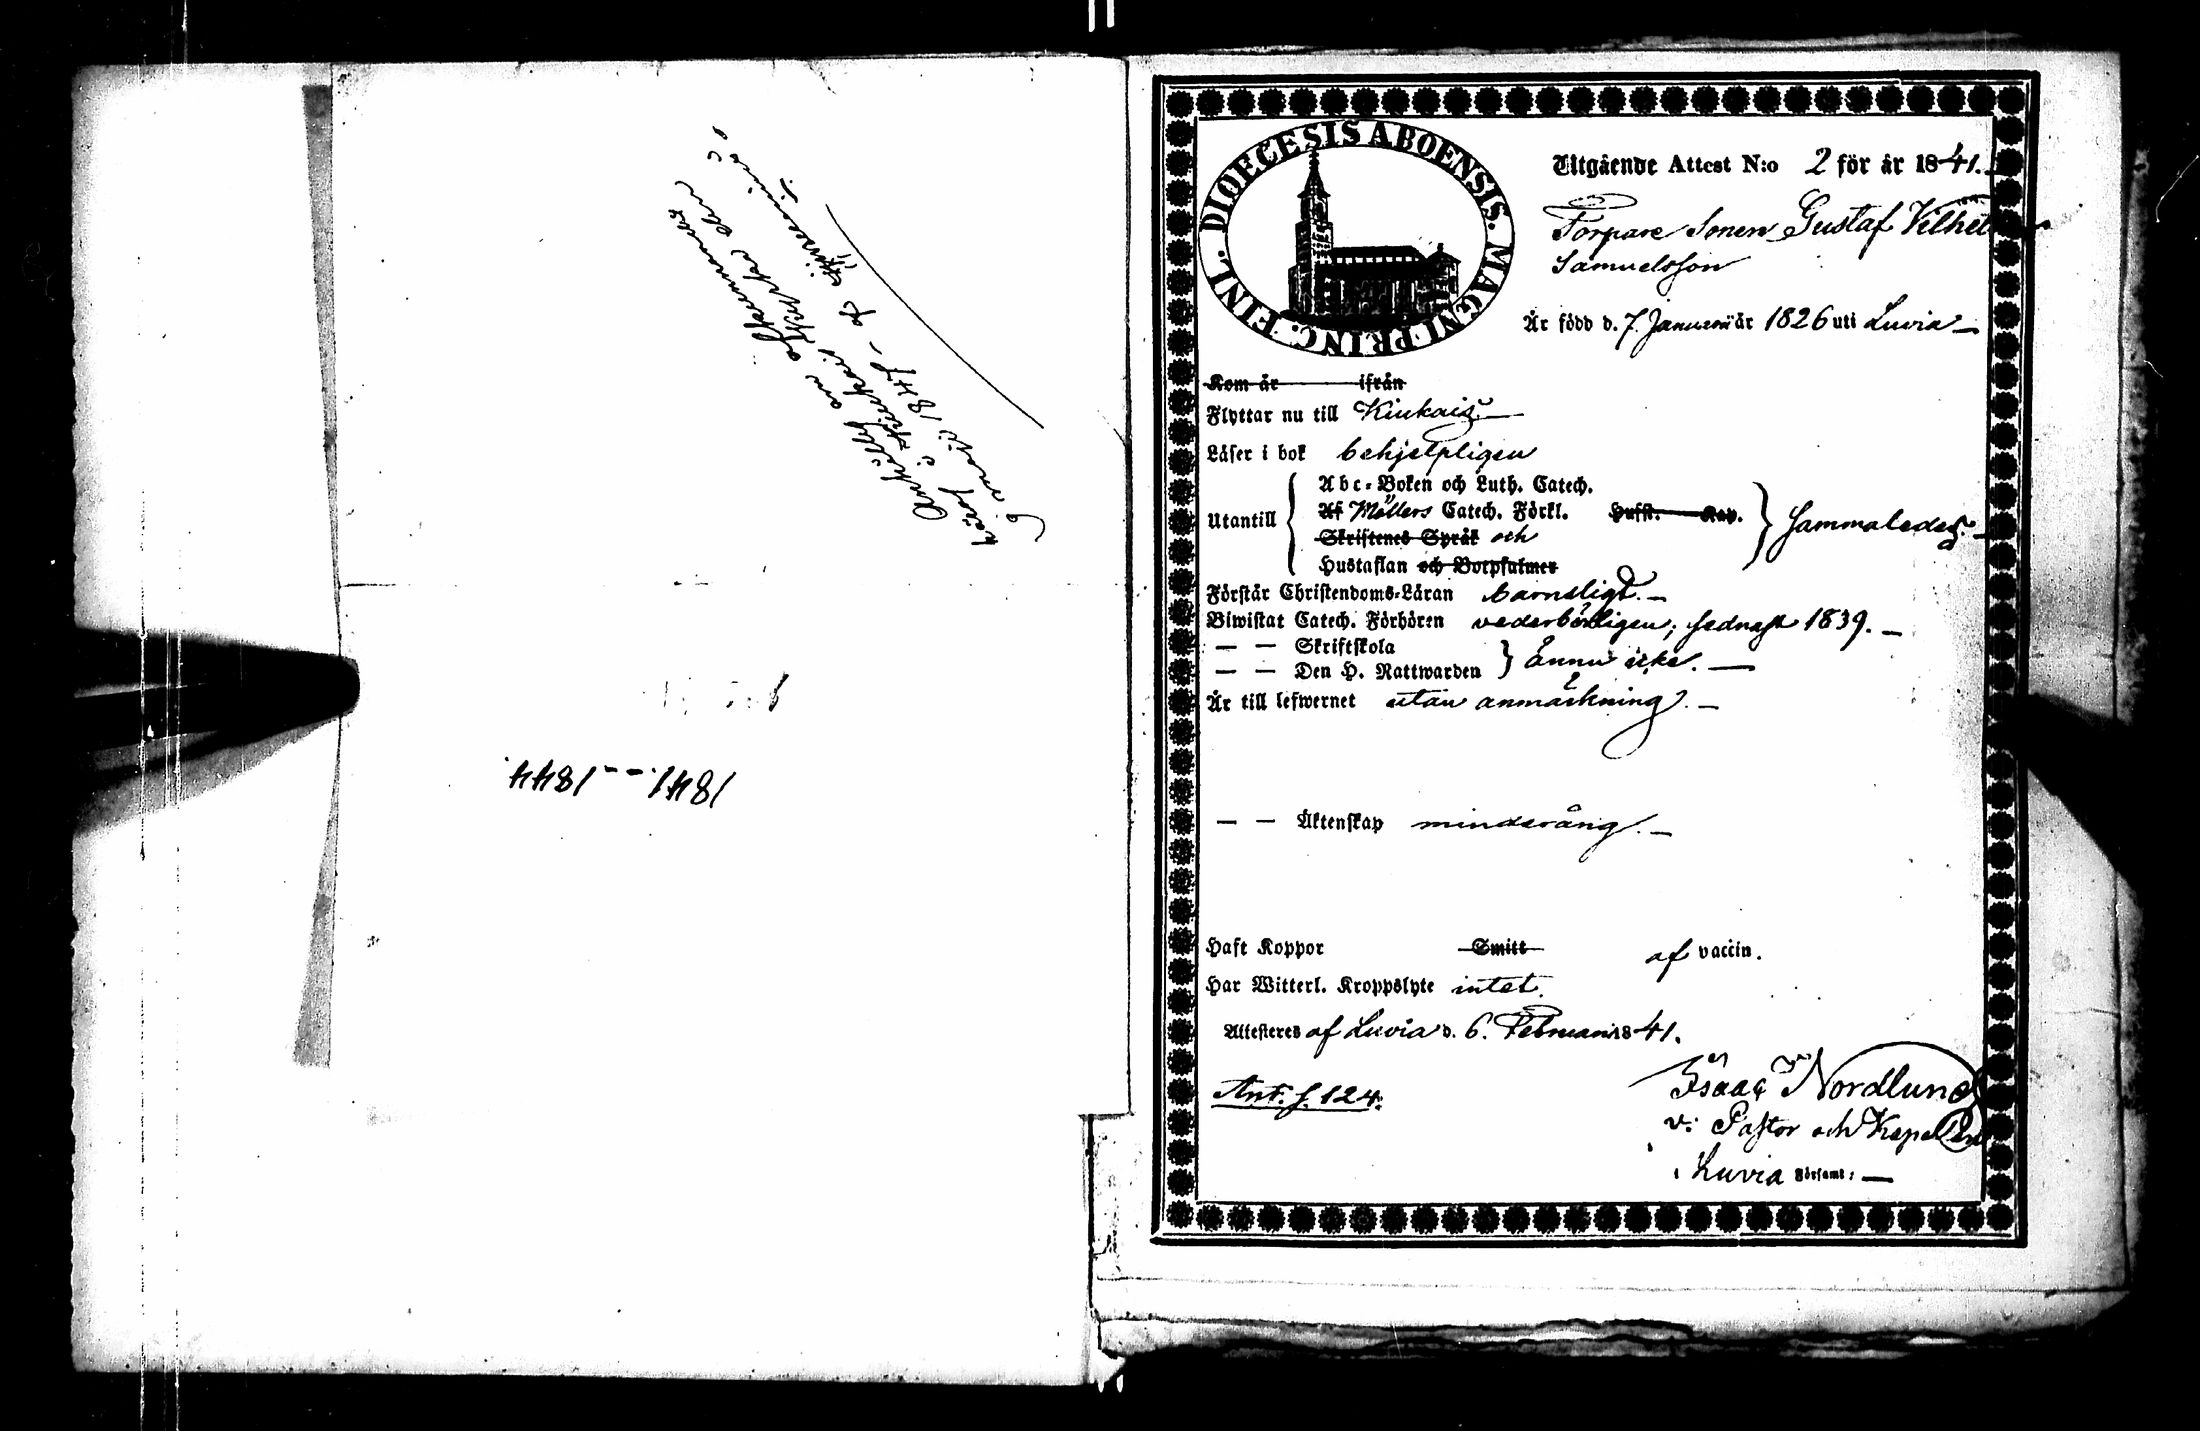 Anställd
hösof i Kiukais Kyrko den
9 maji 1847
1841.--1844.
DIOECESIS ABOENSIS. MAGNI PRINC. FINL.
Utgående Attest N:o 2 för år 1841.
Torpare Sonen Gustaf Vilhelm
Samuelsson
Är född d. 7 Januarii år 1826 uti Luvia
Kom år ifrån
Flyttar nu till Kiukais
Läser i bok behjelpligen
Utantill
Abc-Boken och Luth. Catech.
Af Möllers Catech. Förkl. Hufst. Kap.
Skriftenes Språk och
Hustaflan och Botpsalmer
sammaledes.
Förstår Christendoms-Läran barnsligt.
Biwistat Catech. Förhören vederbörligen; sednast 1839.
— — Skriftskola
— — Den H. Nattwarden
ännu icke.
Är till lefwernet utan anmärkning.
— — Äktenskap minderårig.
Haft Koppor Smitt af vaccin.
Har Witterl. Kroppslyte intet.
Attesteres af Luvia d. 6. Februarii 1841.
Ant. s. 124.
Isaac Nordlund
v. Pastor och Kapellan
i Luvia Församl: